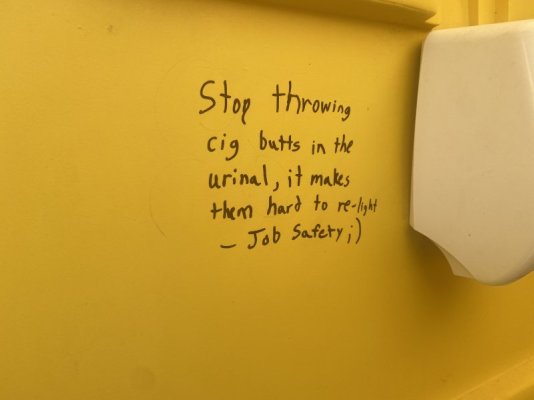 Stop throwing
cig butts in the
urinal, it makes
them hard to re-light
- Job Safety ;)